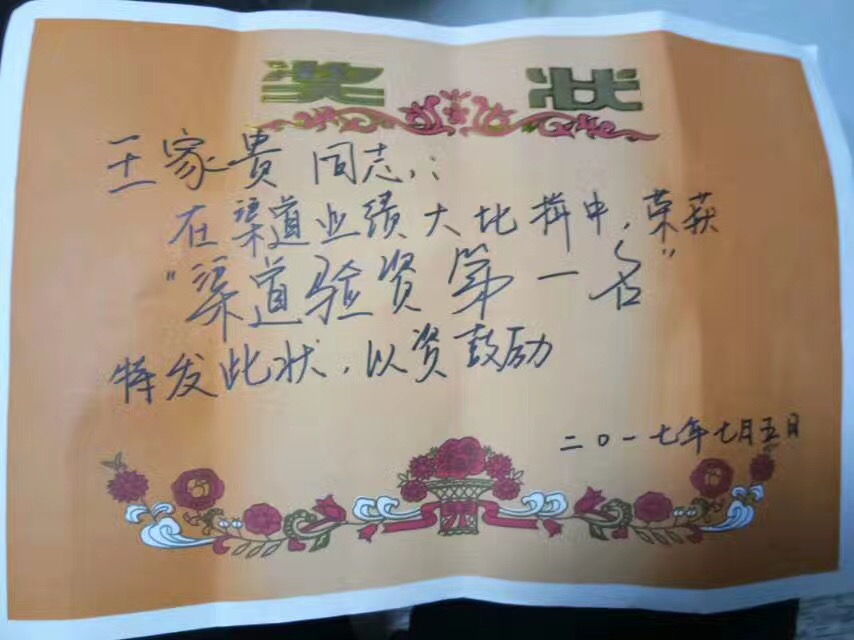 奖状
王家贵 同志:
在渠道业绩大比拼中,荣获
"渠道验资第一名"
特发此状,以资鼓励
二〇一七年七月五日